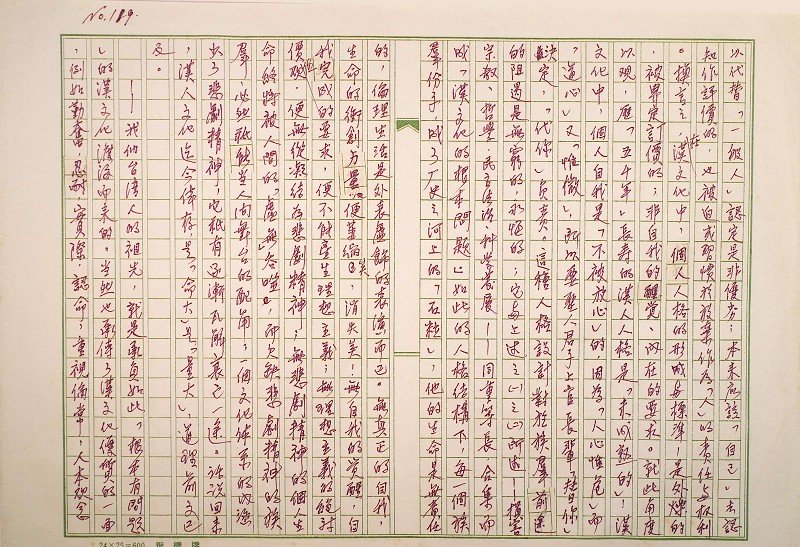 No.189.
以代替「一般人」認定是非優劣；本來應該「自己」去認
知作評價的，也被自我習慣於放棄作為「人」的責任與權利
。換言之，在漢文化中，個人人格的形成與標準，是外爍的
，被界定訂價的；非自我的醒覺、內在的要求。就此角度
以觀，歷「五千年」長壽的漢人人格是「未成熟的」！漢
文化中，個人自我是「不被放心」的，因為「人心惟危」而
「道心」又「惟微」，所以要聖人、君子上官長輩「替你」
決定，「代你」負責。這種人格設計對於族羣前途
的阻遏是無窮的、永恒的；它與上述之㈠之㈡所述——損害
宗教、哲學、民主法治、科學發展——同重等長，合集而
成「漢文化的根本問題」。如此的人格結構下，每一個族
羣份子，成了歷史之河上的「石粒」，他的生命是無責任
的，倫理生活是外表虛飾的表演而已。無真正的自我，
生命的衝創力量便萎縮，消失矣！無自我的覺醒，自
我完成的要求，便不能產生理想主義；無理想主義的絕對
價值，便無從凝結為悲劇精神；無悲劇精神的個人生
命終將被人間的「虛無」吞噬，而欠缺悲劇精神的族
羣，必然祇能當人間舞台的配角；一個文化体系的內涵
少了悲劇精神，也祇有逐漸瓦解衰亡一途。話說回來
，漢人文化迄今倖存是「命大」是「量大」，道理前文已
及。
——我們台灣人的祖先，就是承負如此「根本有問題
」的漢文化渡海而來的。當然也承傳了漢文化優質的一面
，例如勤奮、忍耐、實際、認命；重視倫常，人本观念
24×25=600